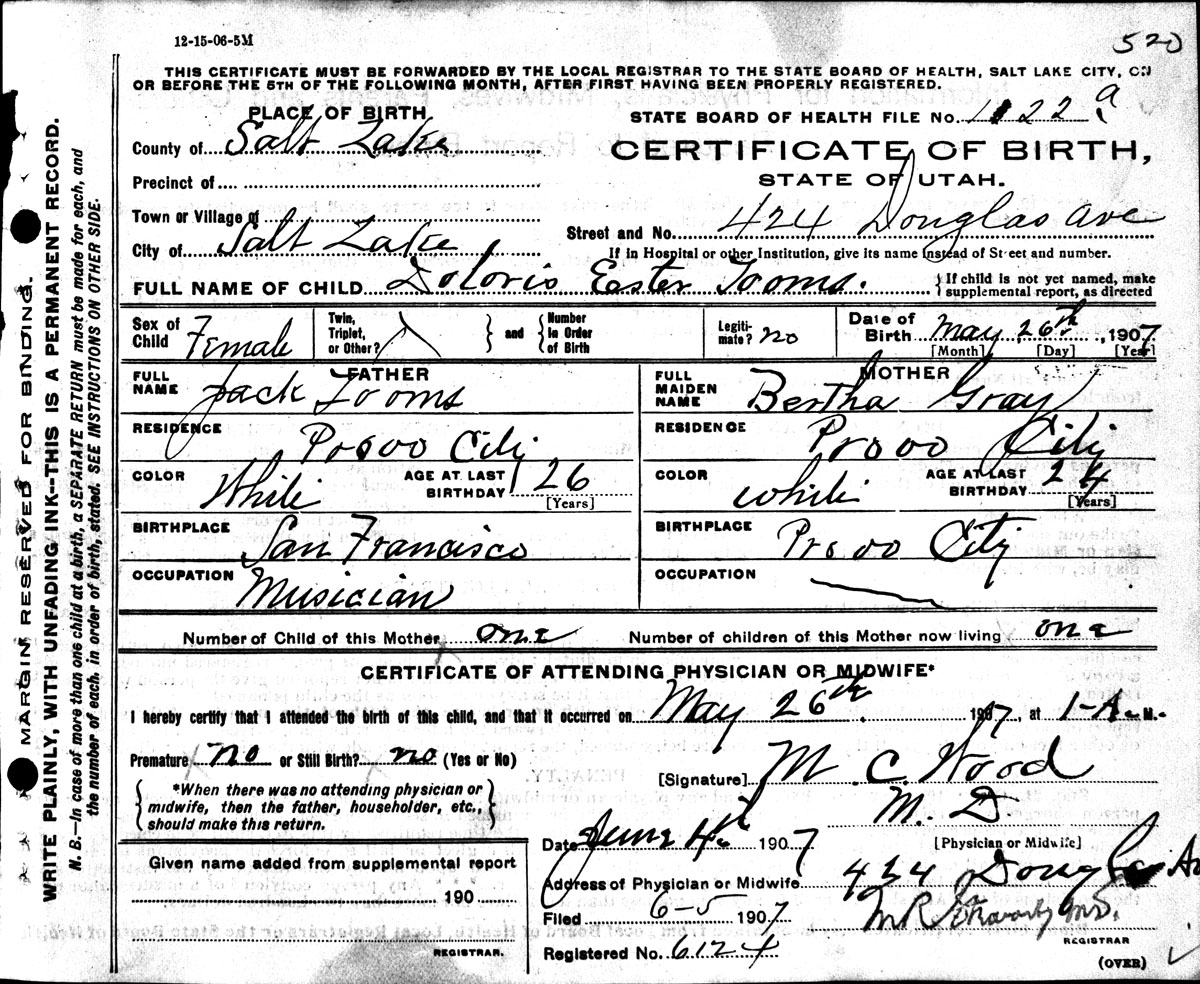 12-15-06-5M
520
THIS CERTIFICATE MUST BE FORWARDED BY THE LOCAL REGISTRAR TO THE STATE BOARD OF HEALTH, SALT LAKE CITY, ON
OR BEFORE THE 5TH OF THE FOLLOWING MONTH, AFTER FIRST HAVING BEEN PROPERLY REGISTERED.
PLACE OF BIRTH
STATE BOARD OF HEALTH FILE No. 22 a
County of Salt Lake
CERTIFICATE OF BIRTH,
STATE OF UTAH.
Precinct of
Town or Village of
Street and No. 424 Douglas Ave
City of Salt Lake
If in Hospital or other Institution, give its name instead of Street and number.
FULL NAME OF CHILD Doloris Ester Tooms.
If child is not yet named, make
supplemental report, as directed
Sex of Child Female
Twin, Triplet, or Other?
and
Number In Order of Birth
Legiti-mate? no
Date of Birth May 26th, 1907
[Month] [Day] [Year]
FATHER
FULL NAME Jack Tooms
MOTHER
FULL MAIDEN NAME Bertha Gray
RESIDENCE Provo City
RESIDENCE Provo City
COLOR White
AGE AT LAST BIRTHDAY 26
[Years]
COLOR white
AGE AT LAST BIRTHDAY 24
[Years]
BIRTHPLACE San Francisco
BIRTHPLACE Provo City
OCCUPATION Musician
OCCUPATION
Number of Child of this Mother one
Number of children of this Mother now living one
CERTIFICATE OF ATTENDING PHYSICIAN OR MIDWIFE*
I hereby certify that I attended the birth of this child, and that it occurred on May 26th. 1907, at 1-A. M.
Premature no or Still Birth? no (Yes or No)
[Signature] M. C. Wood
M. D.
[Physician or Midwife]
*When there was no attending physician or
midwife, then the father, householder, etc.,
should make this return.
Date June 4th 1907
Given name added from supplemental report
190
REGISTRAR.
Address of Physician or Midwife 424 Douglas Av
Filed 6-5 1907
M.D.
REGISTRAR
Registered No. 6124
(OVER)
MARGIN RESERVED FOR BINDING.
WRITE PLAINLY, WITH UNFADING INK--THIS IS A PERMANENT RECORD.
N. B.—In case of more than one child at a birth, a SEPARATE RETURN must be made for each, and
the number of each, in order of birth, stated. SEE INSTRUCTIONS ON OTHER SIDE.